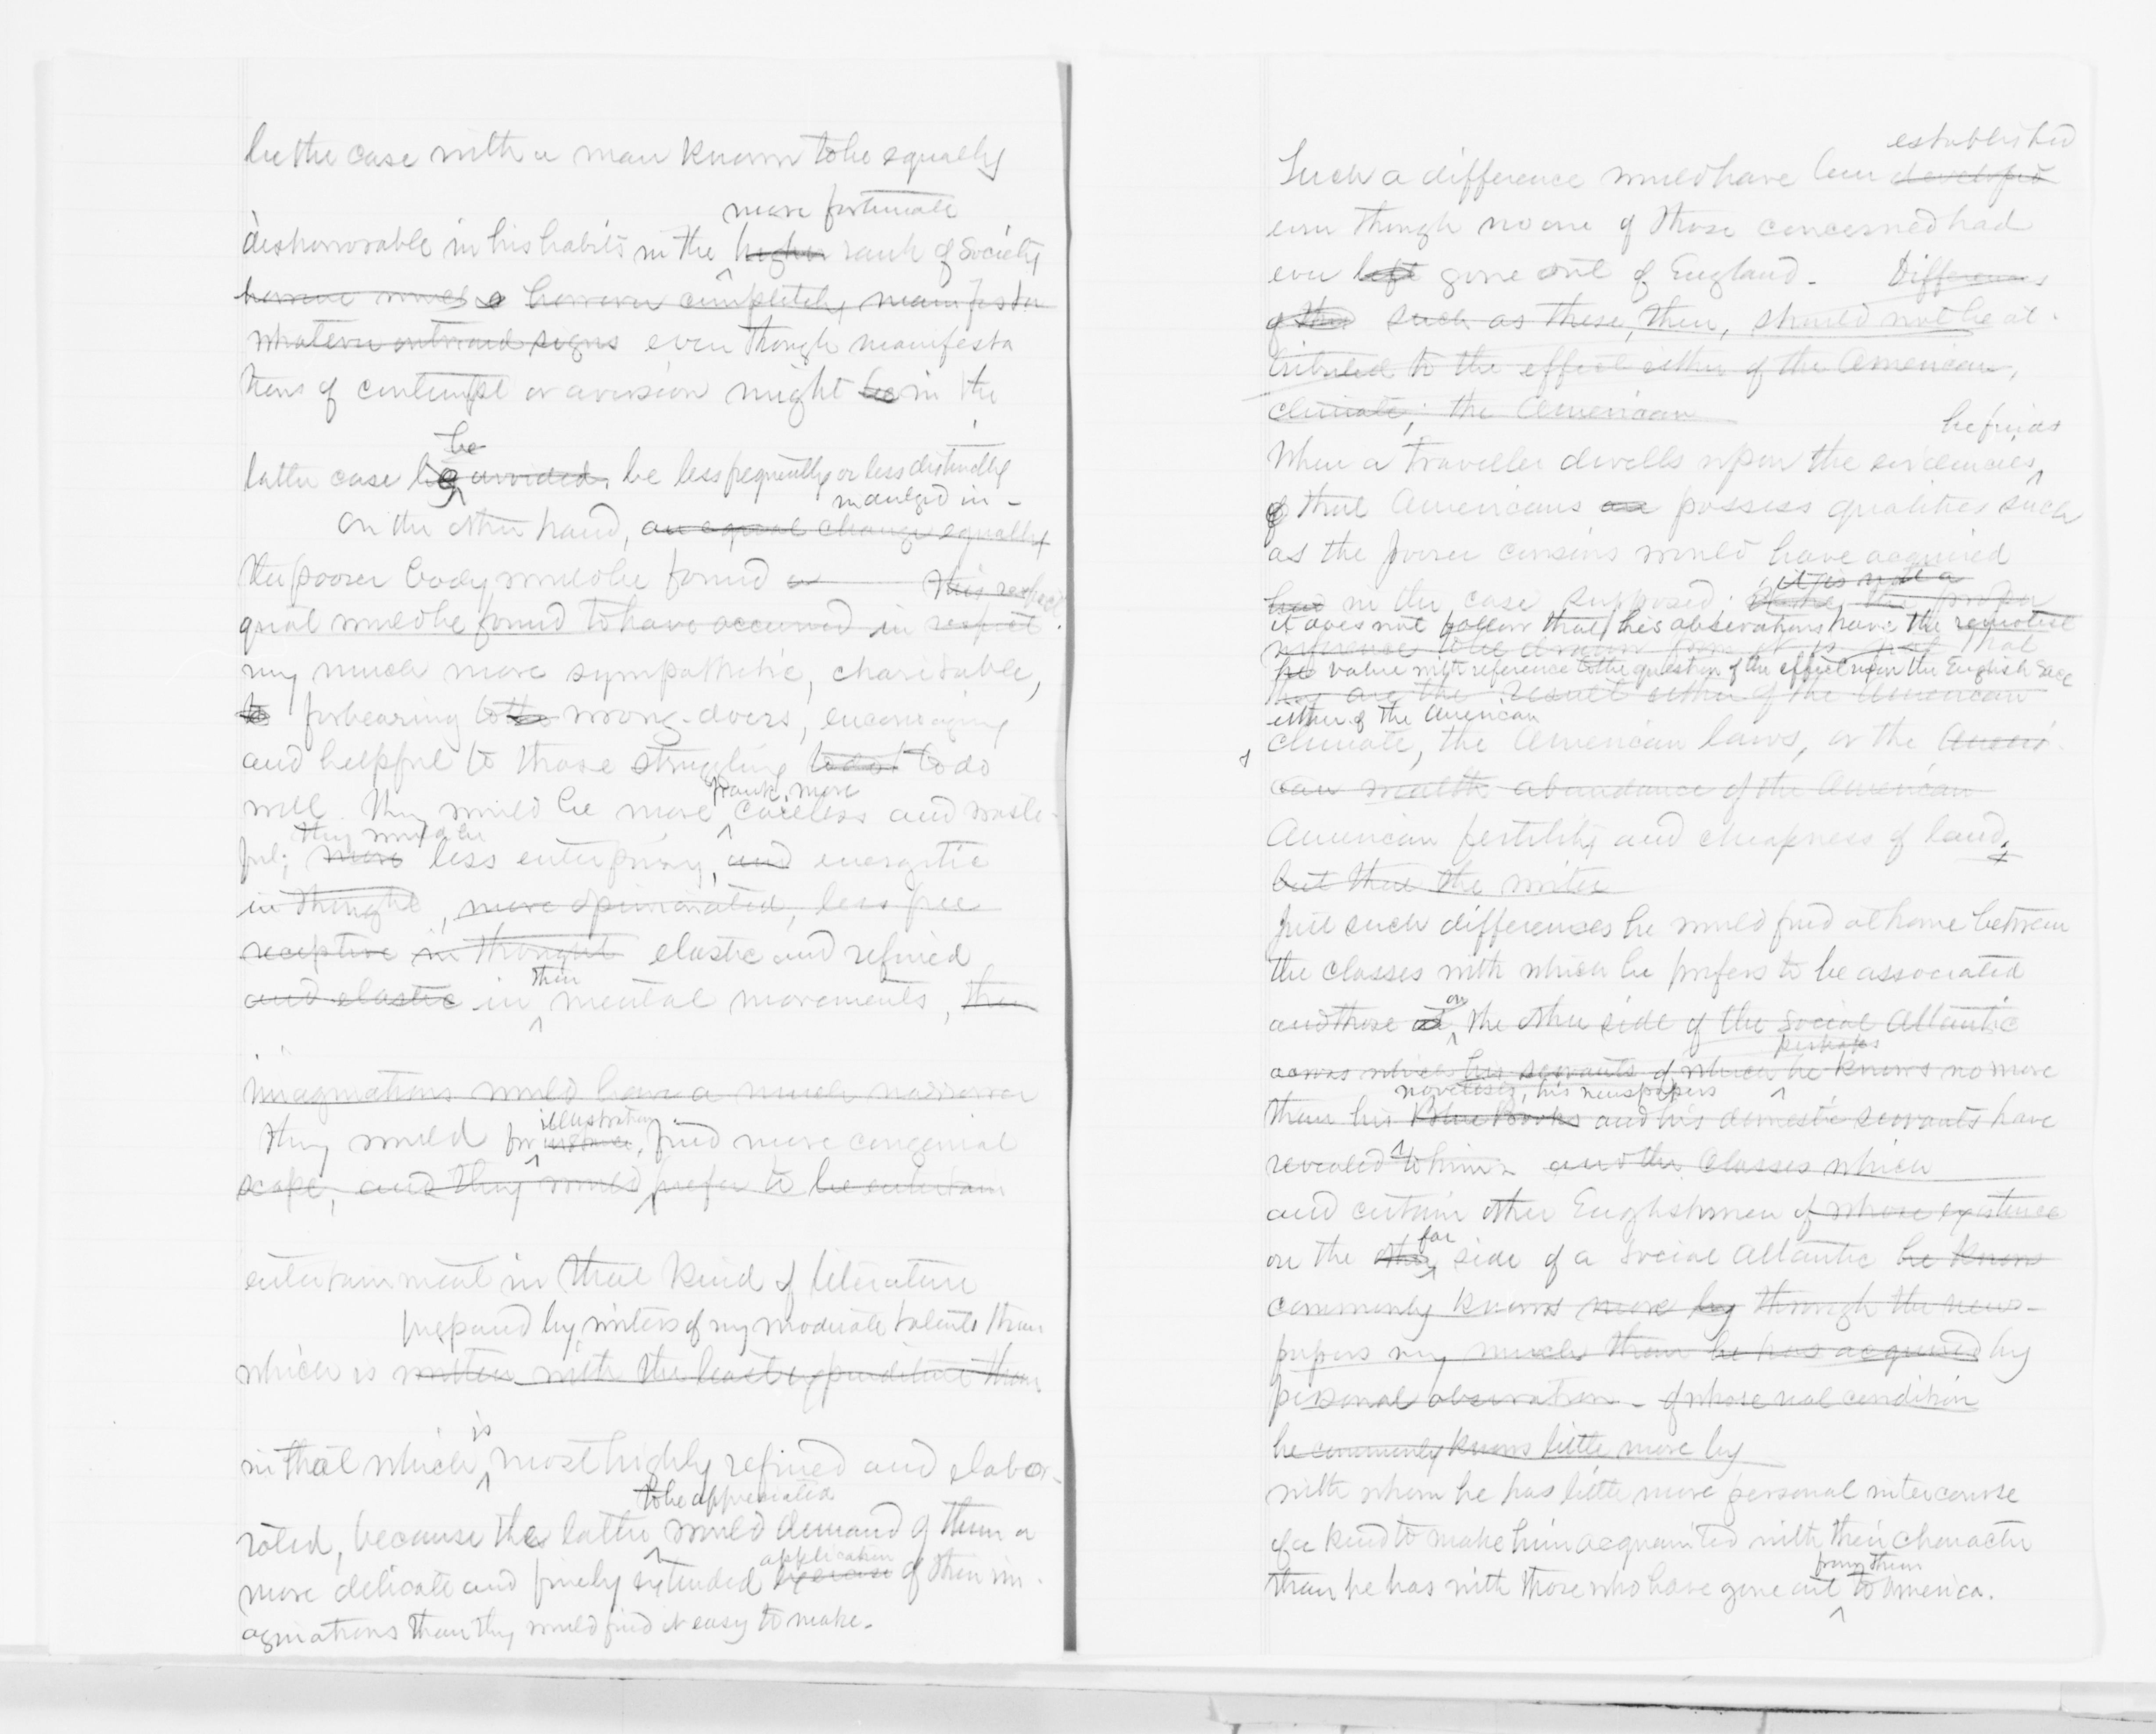 be the case with a man known to be equally
more fortunate
dishonorable in his habits in the higher rank of society
however completely manifesta
whatever outward signs even though manifesta
tions of contempt or aversion might be in the
be
latter case be avoided, be less frequently or less distinctly
indulged in -
On the other hand, an equal change equally
the poorer body would be found this respect
qual would be found to have occurred in respect
ing much more sympathetic, charitable,
to forbearing to the wrong-doers, encouraging
and helpful to those struggling to do
well. They would be more careless and waste-
frank, more
they would be
ful; more less enterprising, and energetic
in thought, more opinionated, less free
receptive in thought elastic and refined
their
and elastic in mental movements, their
imaginations would have a much narrower
illustration
They would for instance, find more congenial
scope, and they would prefer to be entertain
entertainment in that kind of literature
prepared by writers of very moderate talents than
which is written with the least expenditure than
is
in that which most highly refined and elabo-
to be appreciated
rated, because the latter would demand of them a
application
more delicate and finely extended exercise of their im-
aginations than they would find it easy to make.
established
Such a difference would have been developed
even though no one of those concerned had
ever left gone out of England. Differences
of this such as these, then, should not be at-
tributed to the effect either of the American,
climate, the American
he finds
When a traveller dwells upon the evidences
of that Americans possess qualities such
as the poorer cousins would have acquired
it is not a
had in the case supposed; the proper
it does not follow that his observations have the remotest
inference to be drawn from it is not that
value with reference to the question of the effect upon the English race
they are the result either of the American
either of the American
climate, the American laws, or the Ameri-
can wealth abundance of the American
American fertility and cheapness of land.
but that the writer
Just such differences he would find at home between
the classes with which he prefers to be associated
on
and those the other side of the social Atlantic
perhaps
across which his servants of which he knows no more
novelists, his newspapers
than his Blue Books and his domestic servants have
revealed to him. another classes which
and certain other Englishmen of whose existence
far
on the other side of a social Atlantic he knows
commonly knows more by through the news-
papers very much than he has acquired by
personal observation - of whose real condition
he commonly knows little more by
with whom he has little more personal intercourse
of a kind to make him acquainted with their character
from them
than he has with those who have gone out to America.